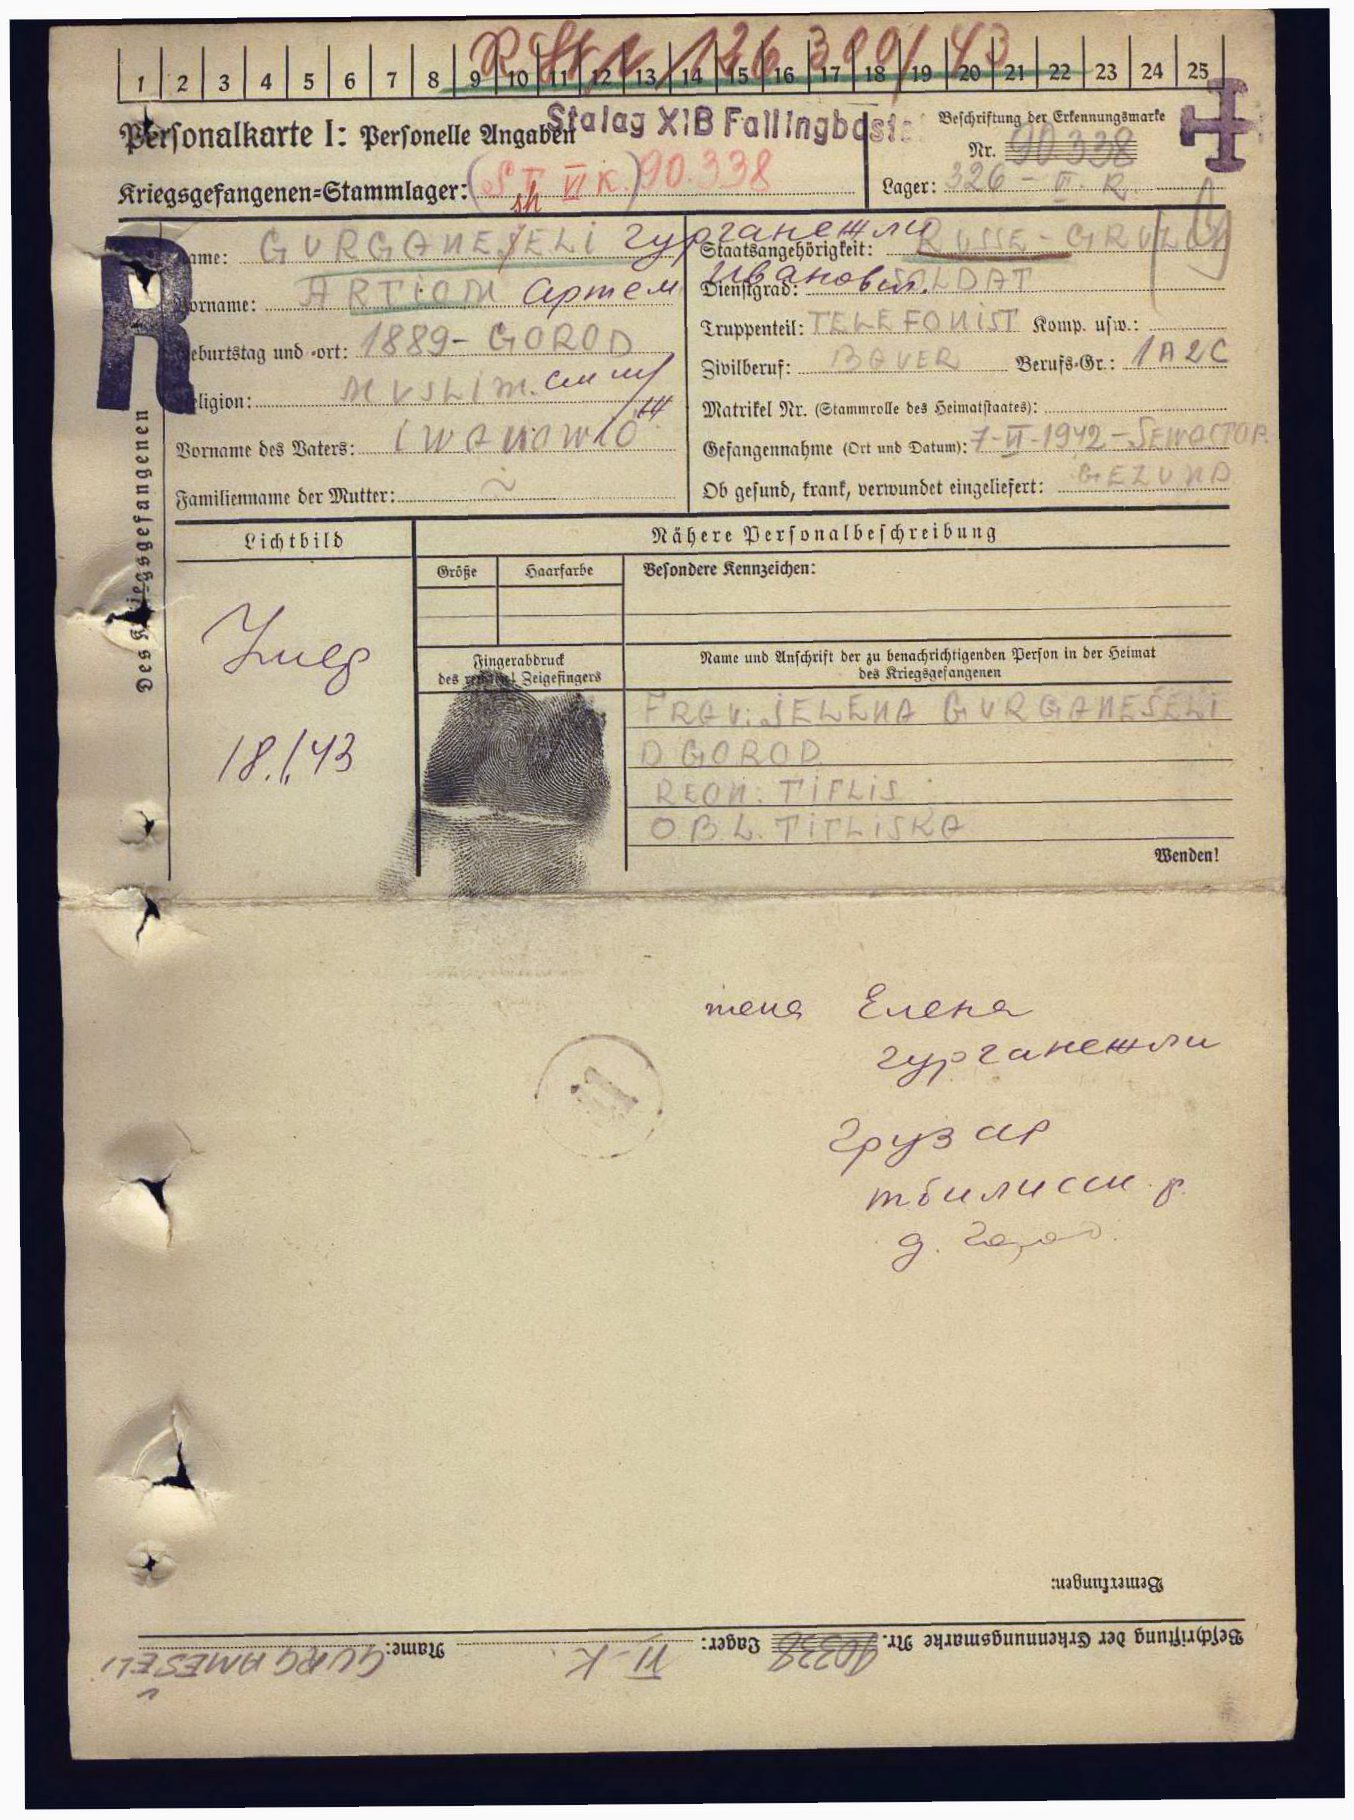 R
1 2 3 4 5 6 7 8 9 10 11 12 13 14 15 16 17 18 19 20 21 22 23 24 25
Personalkarte I: Personelle Angaben
Stalag XIB Fallingbostel
Beschriftung der Erkennungsmarke
Nr. 90338
Kriegsgefangenen=Stammlager: (ST VI K.) 90.338
Lager: 326 - VI. K.
R
Des Kriegsgefangenen
Name: GURGANEŠELI гурганешли
Staatsangehörigkeit: RUSSE -
Vorname: ARTIOM Артем Иванович.
Dienstgrad: SOLDAT
Truppenteil: TELEFONIST Komp. usw.:
Geburtstag und -ort: 1889 - GOROD
Zivilberuf: BAUER Berufs-Gr.: 1A2C
Religion: MUSLIM.
Matrikel Nr. (Stammrolle des Heimatstaates):
Vorname des Vaters: IWANOWIČ
Gefangennahme (Ort und Datum): 7-VI-1942-SEWASTOP.
Familienname der Mutter: ~
Ob gesund, krank, verwundet eingeliefert: GEZUND
Lichtbild
Nähere Personalbeschreibung
Größe
Haarfarbe
Besondere Kennzeichen:
18.1.43
Fingerabdruck
des rechten! Zeigefingers
Name und Anschrift der zu benachrichtigenden Person in der Heimat
des Kriegsgefangenen
FRAU: JELENA GURGANEŠELI
D. GOROD
REON: TIFLIS
OBL. TIFLISKA
Wenden!
жена Елена
гурганешли
Груз ср
тбилисси р.
д. Город.
Bemerkungen:
Beschriftung der Erkennungsmarke Nr. 90338 Lager: VI-K Name: GURGANEŠELI